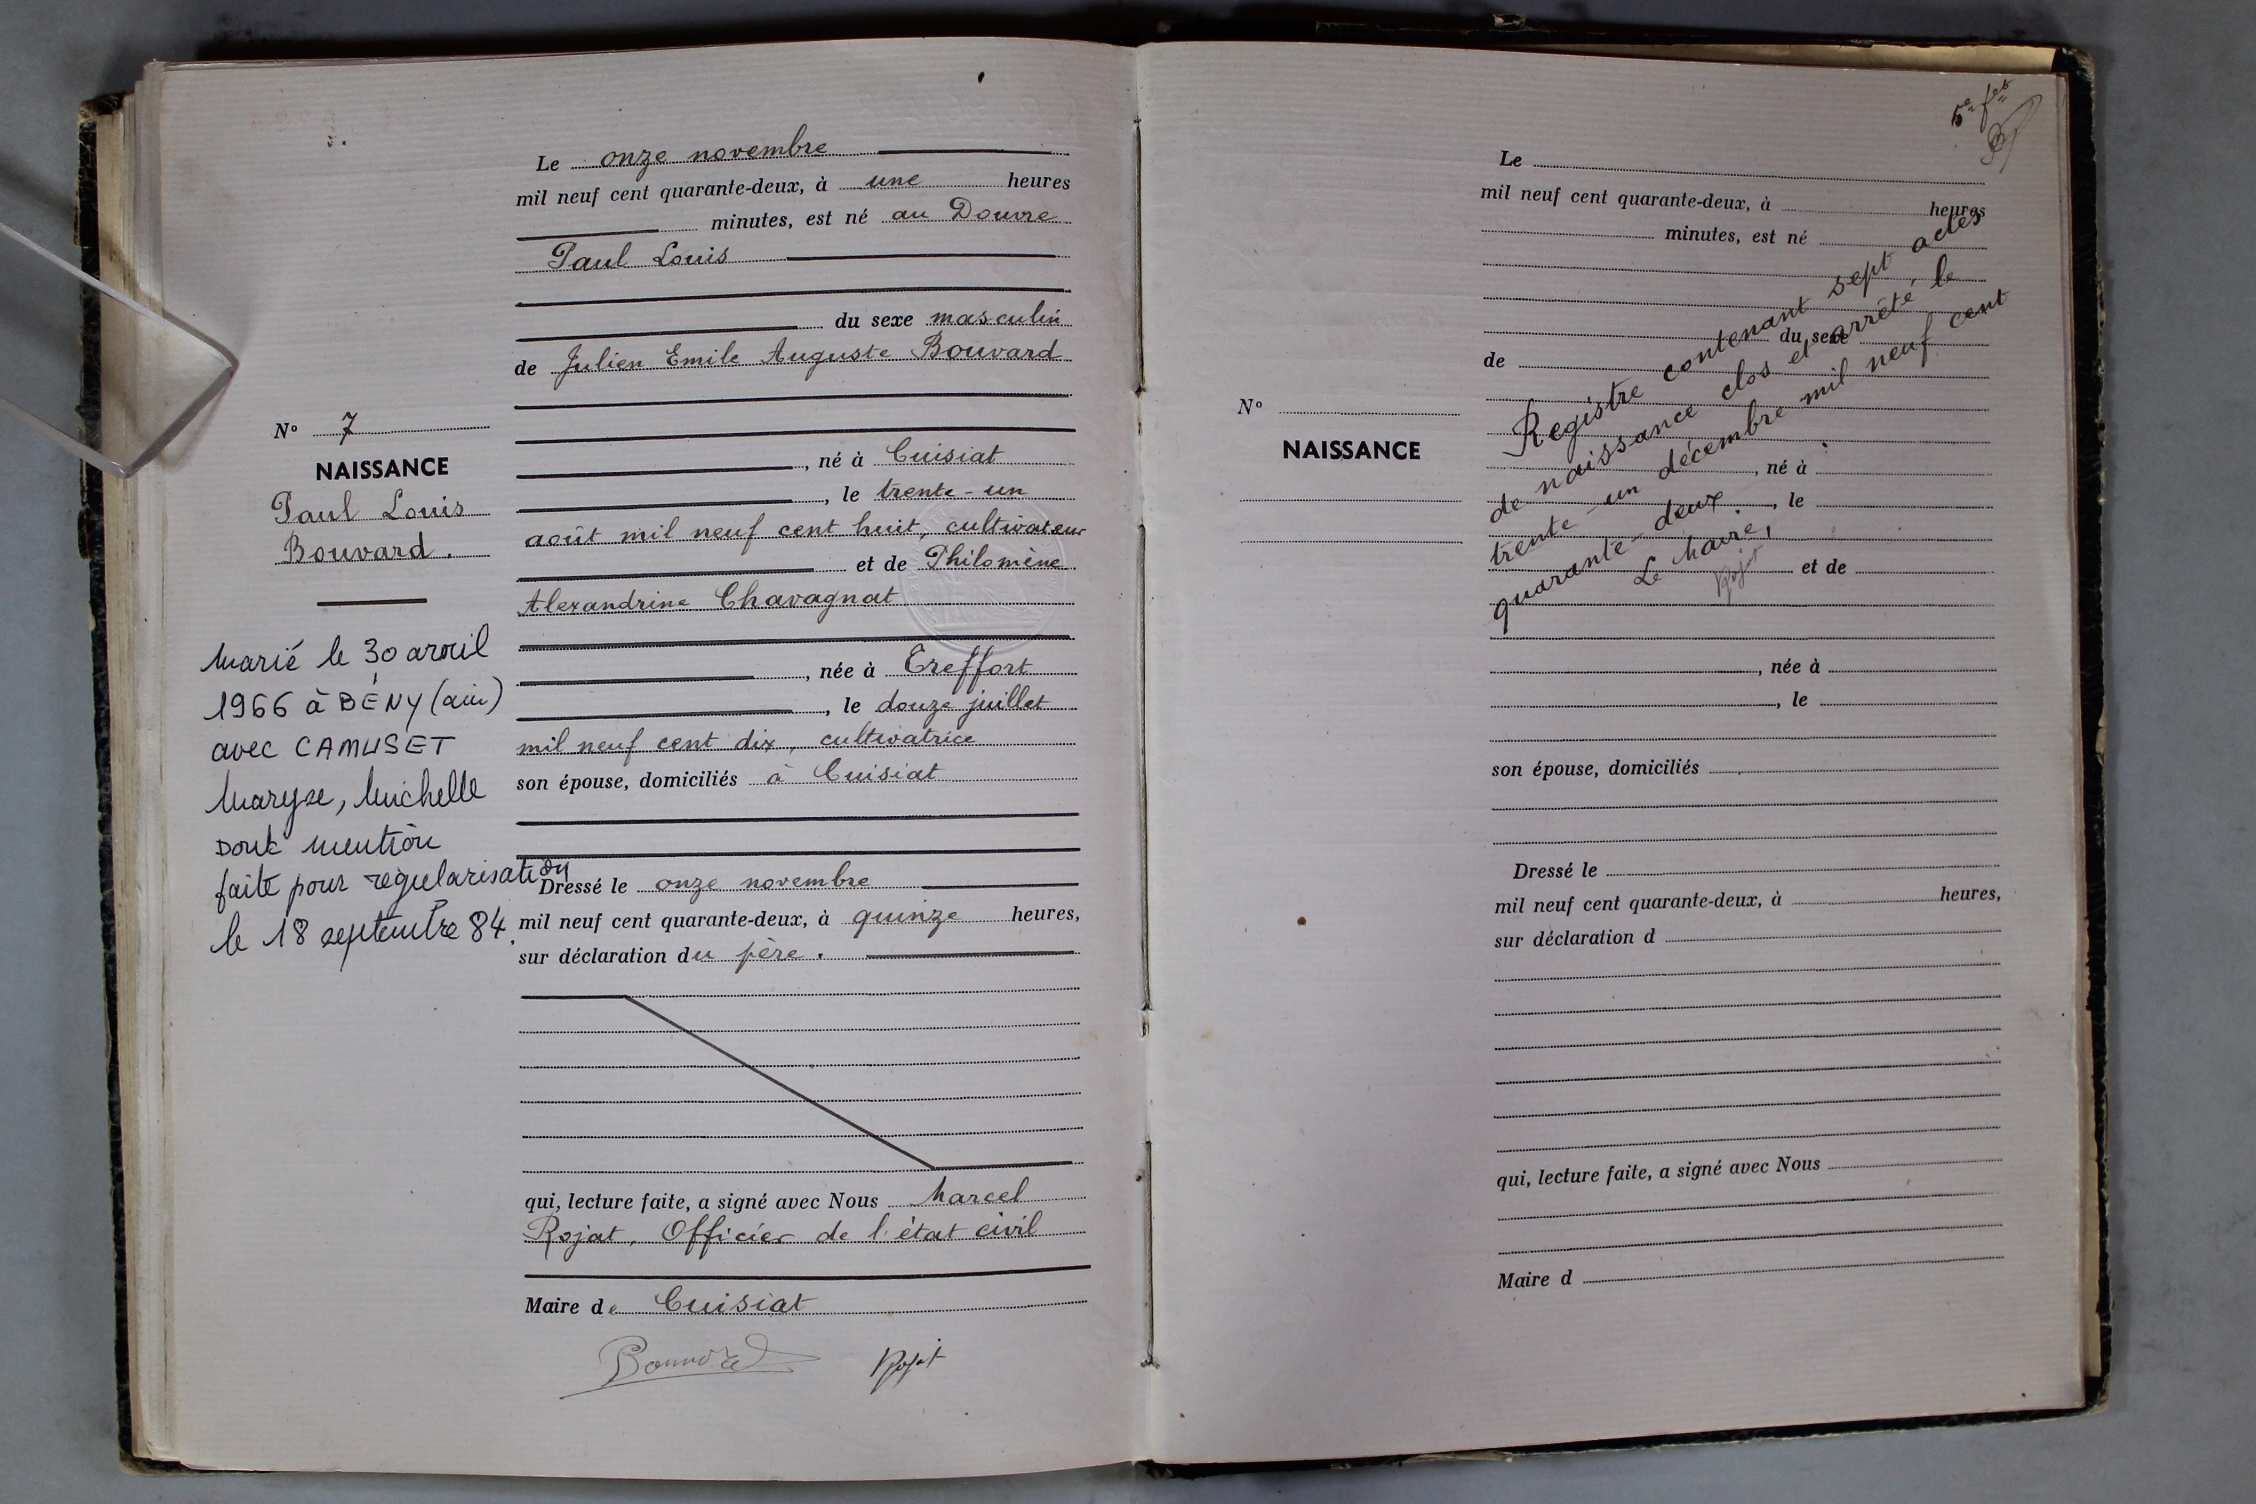 Le onze novembre
mil neuf cent quarante-deux, à une heures
minutes, est né au Douvre
Paul Louis
du sexe masculin
de Julien Emile Auguste Bouvard
, né à Cuisiat
, le trente-un
août mil neuf cent huit, cultivateur
et de Philomène
Alexandrine Chavagnat
, née à Treffort
, le douze juillet
mil neuf cent dix, cultivatrice
son épouse, domiciliés à Cuisiat
Dressé le onze novembre
mil neuf cent quarante-deux, à quinze heures,
sur déclaration du père.
qui, lecture faite, a signé avec Nous Marcel
Rojat, Officier de l'état civil
Maire de Cuisiat
Bouvard Rojat
N° 7
NAISSANCE
Paul Louis
Bouvard.
Marié le 30 avril
1966 à BÉNY (ain)
avec CAMUSET
Maryse, Michelle
Dont mention
faite pour régularisation
le 18 septembre 84.
Le
mil neuf cent quarante-deux, à heures
minutes, est né
du sexe
de
N°
NAISSANCE
, né à
, le
et de
, née à
, le
son épouse, domiciliés
Dressé le
mil neuf cent quarante-deux, à heures,
sur déclaration d
qui, lecture faite, a signé avec Nous
Maire d
Registre contenant sept actes
de naissance clos et arrêté le
trente-un décembre mil neuf cent
quarante-deux
Le Maire,
Rojat